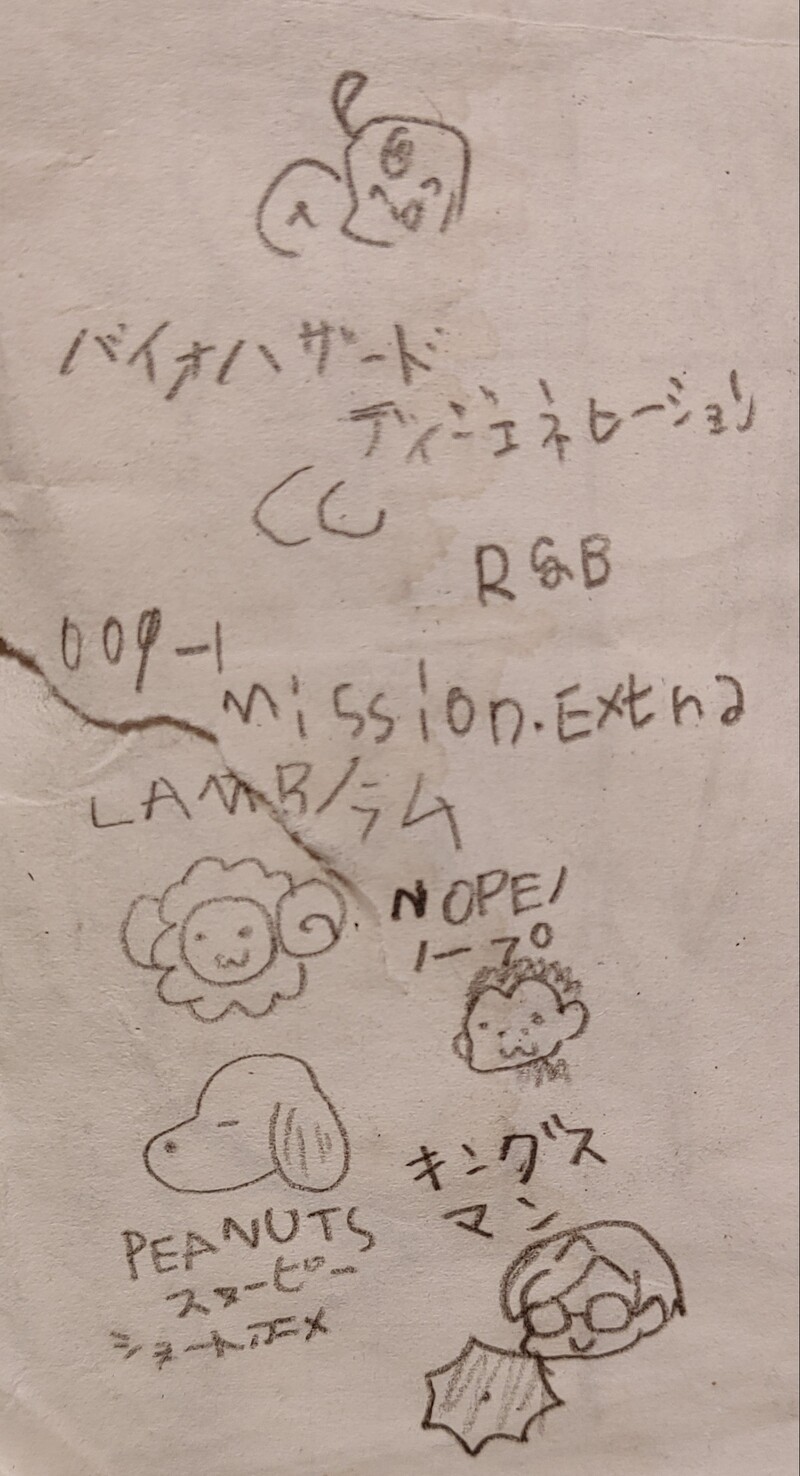 バイオハザード
ディジェネレーション
CC
R&B
009-1
mission.Extra
LAMB/ラム
NOPE/
ノープ
キングス
マン
PEANUTS
スヌーピー
ショートアニメ